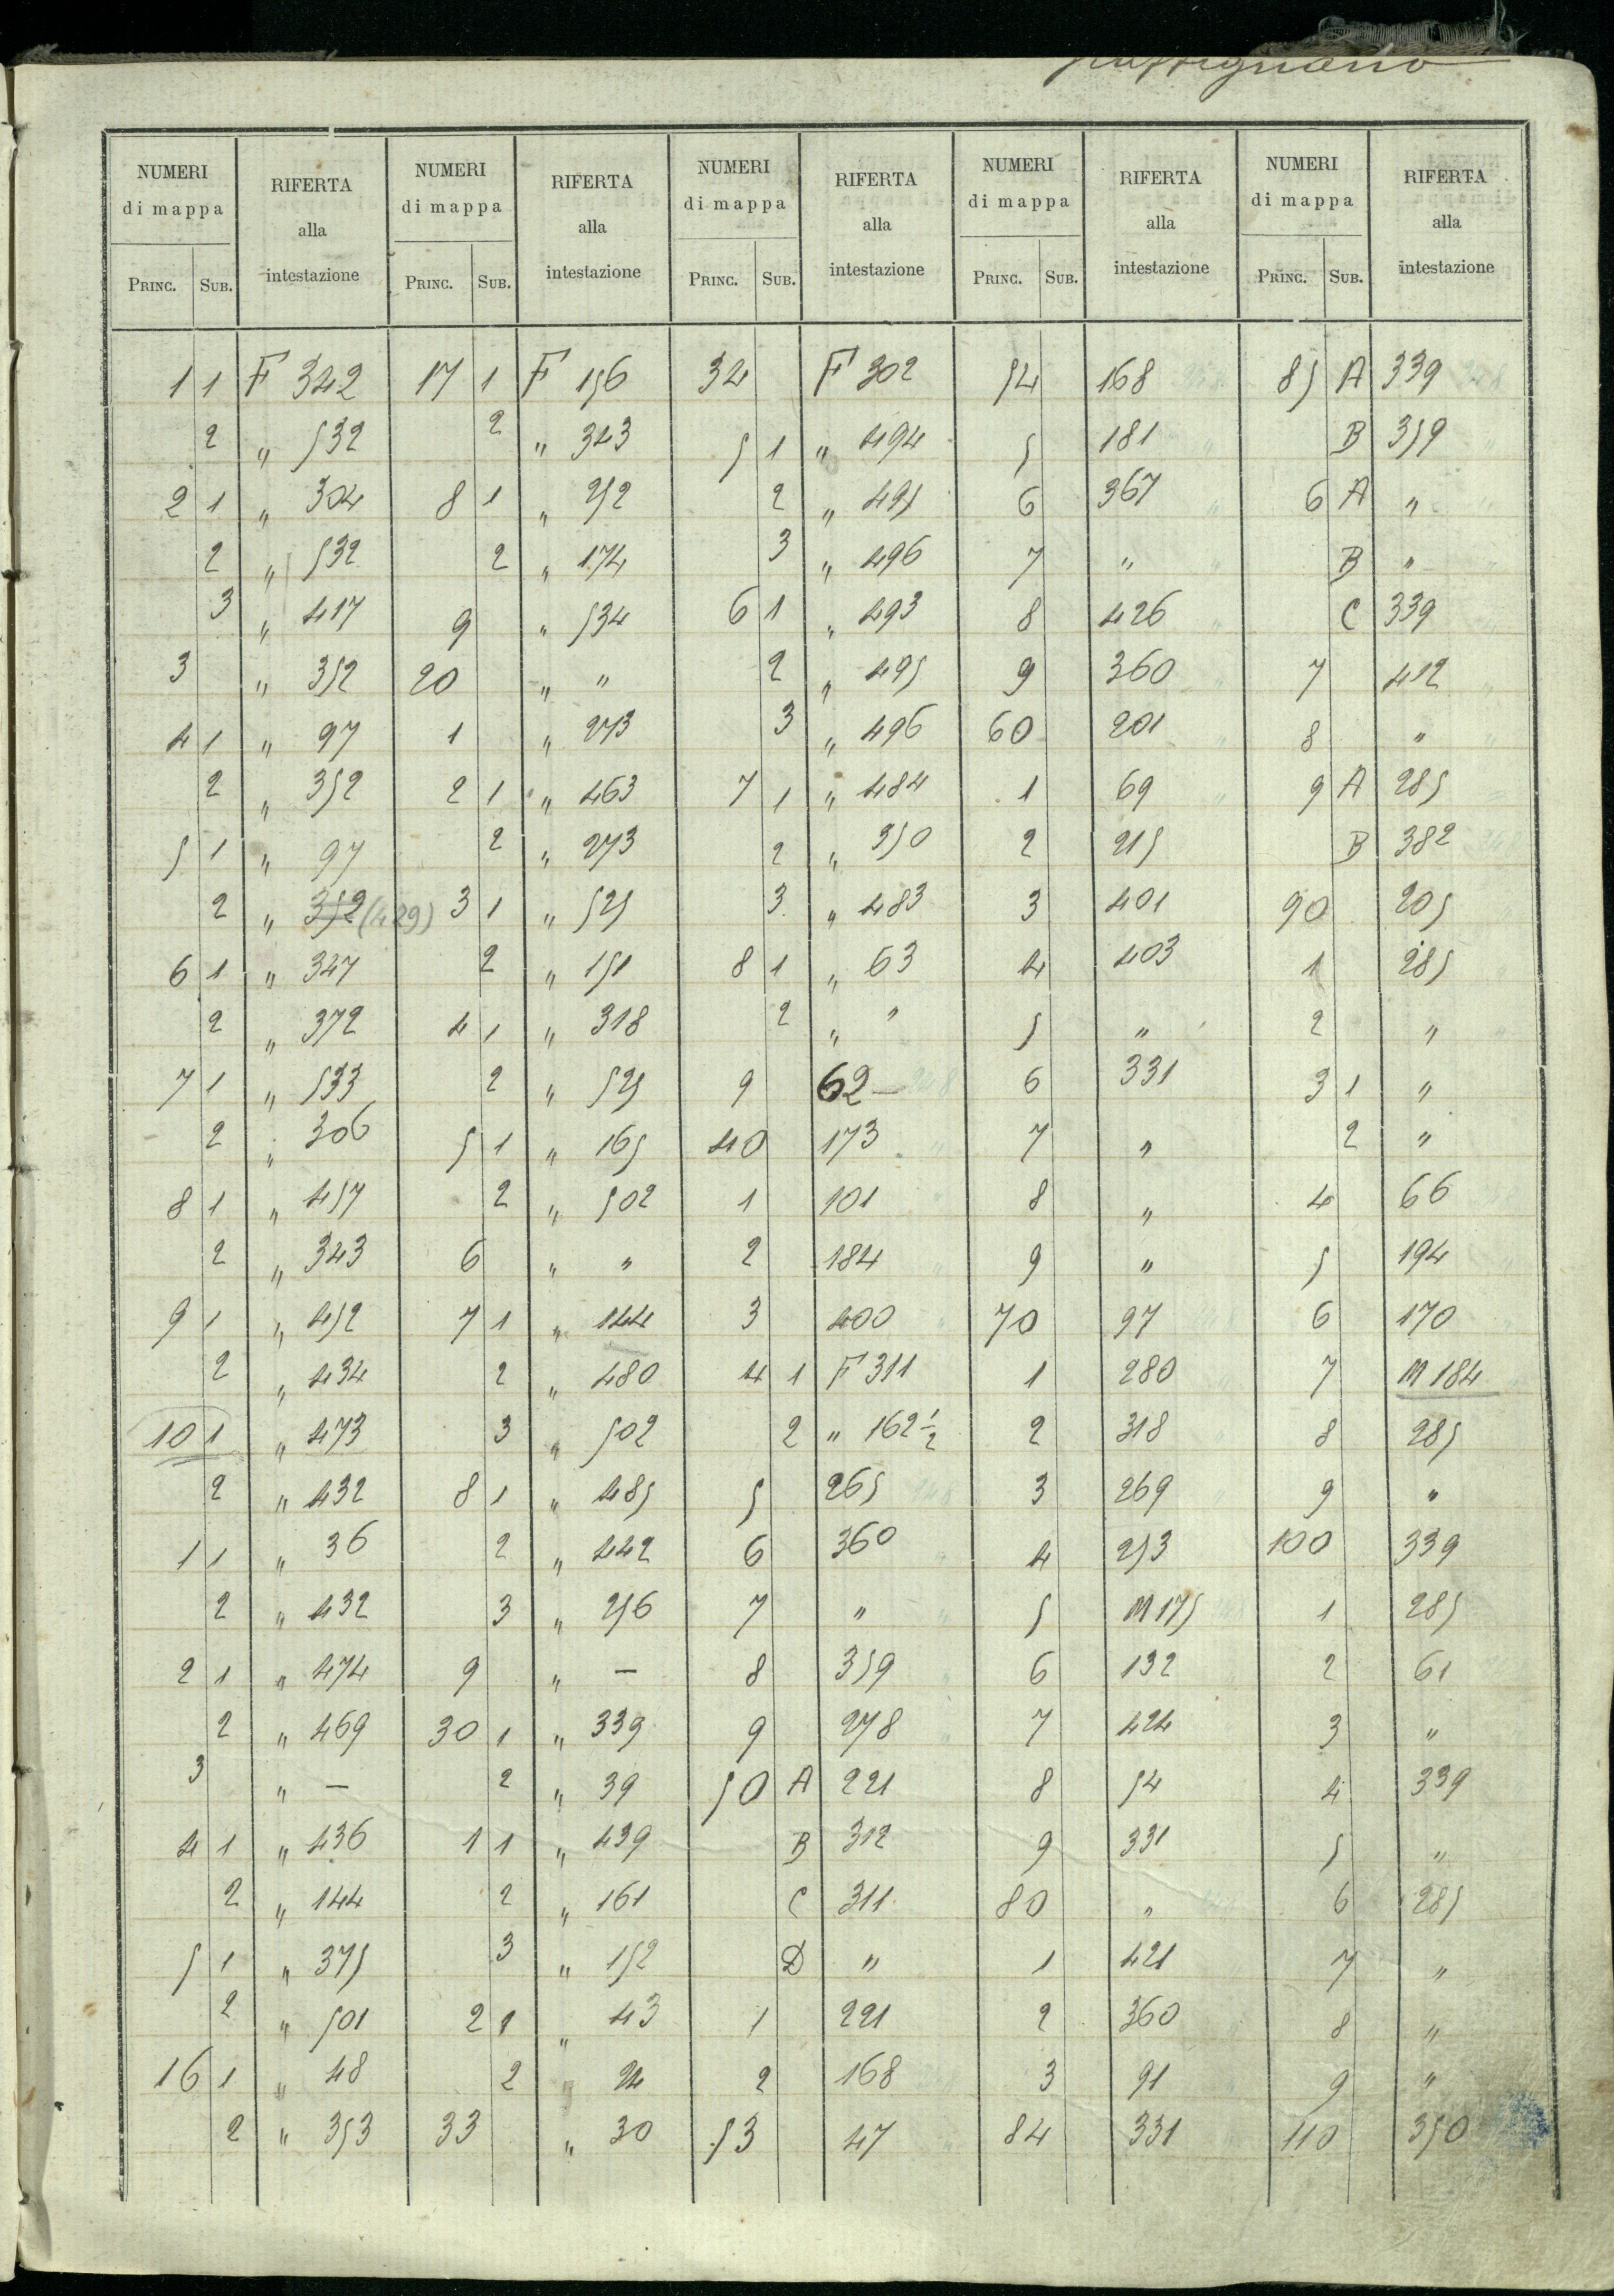 NUMERI di mappa RIFERTA alla intestazione NUMERI di mappa RIFERTA alla intestazione NUMERI di mappa RIFERTA alla intestazione NUMERI di mappa RIFERTA alla intestazione NUMERI di mappa RIFERTA alla intestazione
PRINC. SUB. PRINC. SUB. PRINC. SUB. PRINC. SUB. PRINC. SUB.
1 1 F 342 17 1 F 156 34 F 302 54 168 85 A 339
2 " 532 2 " 343 5 1 " 494 5 181 B 359
2 1 " 304 8 1 " 252 2 " 495 6 367 6 A "
2 " 532 2 " 174 3 " 496 7 " B "
3 " 417 9 " 534 6 1 " 493 8 426 C 339
3 " 352 20 " " 2 " 495 9 360 7 412
4 1 " 97 1 " 273 3 " 496 60 201 8 "
2 " 352 2 1 " 463 7 1 " 484 1 69 9 A 285
5 1 " 97 2 " 273 2 " 350 2 215 B 382
2 " 352 (429) 3 1 " 525 3 " 483 3 401 90 205
6 1 " 347 2 " 151 8 1 " 63 4 403 1 285
2 " 372 4 1 " 318 2 " " 5 " 2 "
7 1 " 533 2 " 525 9 62 6 331 3 1 "
2 " 306 5 1 " 165 40 173 7 " 2 "
8 1 " 457 2 " 502 1 101 8 " 4 66
2 " 343 6 " " 2 184 9 " 5 194
9 1 " 452 7 1 " 144 3 400 70 97 6 170
2 " 434 2 " 480 4 1 F 311 1 280 7 M 184
10 1 " 473 3 " 502 2 " 162 1/2 2 318 8 285
2 " 432 8 1 " 485 5 265 3 269 9 "
1 1 " 36 2 " 442 6 360 4 253 100 339
2 " 432 3 " 256 7 " 5 M 175 1 285
2 1 " 474 9 " — 8 359 6 132 2 61
2 " 469 30 1 " 339 9 278 7 424 3 "
3 " — 2 " 39 50 A 221 8 54 4 339
4 1 " 436 1 1 " 439 B 312 9 331 5 "
2 " 144 2 " 161 C 311 80 " 6 285
5 1 " 375 3 " 152 D " 1 421 7 "
2 " 501 2 1 " 43 1 221 2 360 8 "
16 1 " 48 2 " 24 2 168 3 91 9 "
2 " 353 33 " 30 53 47 84 331 110 350